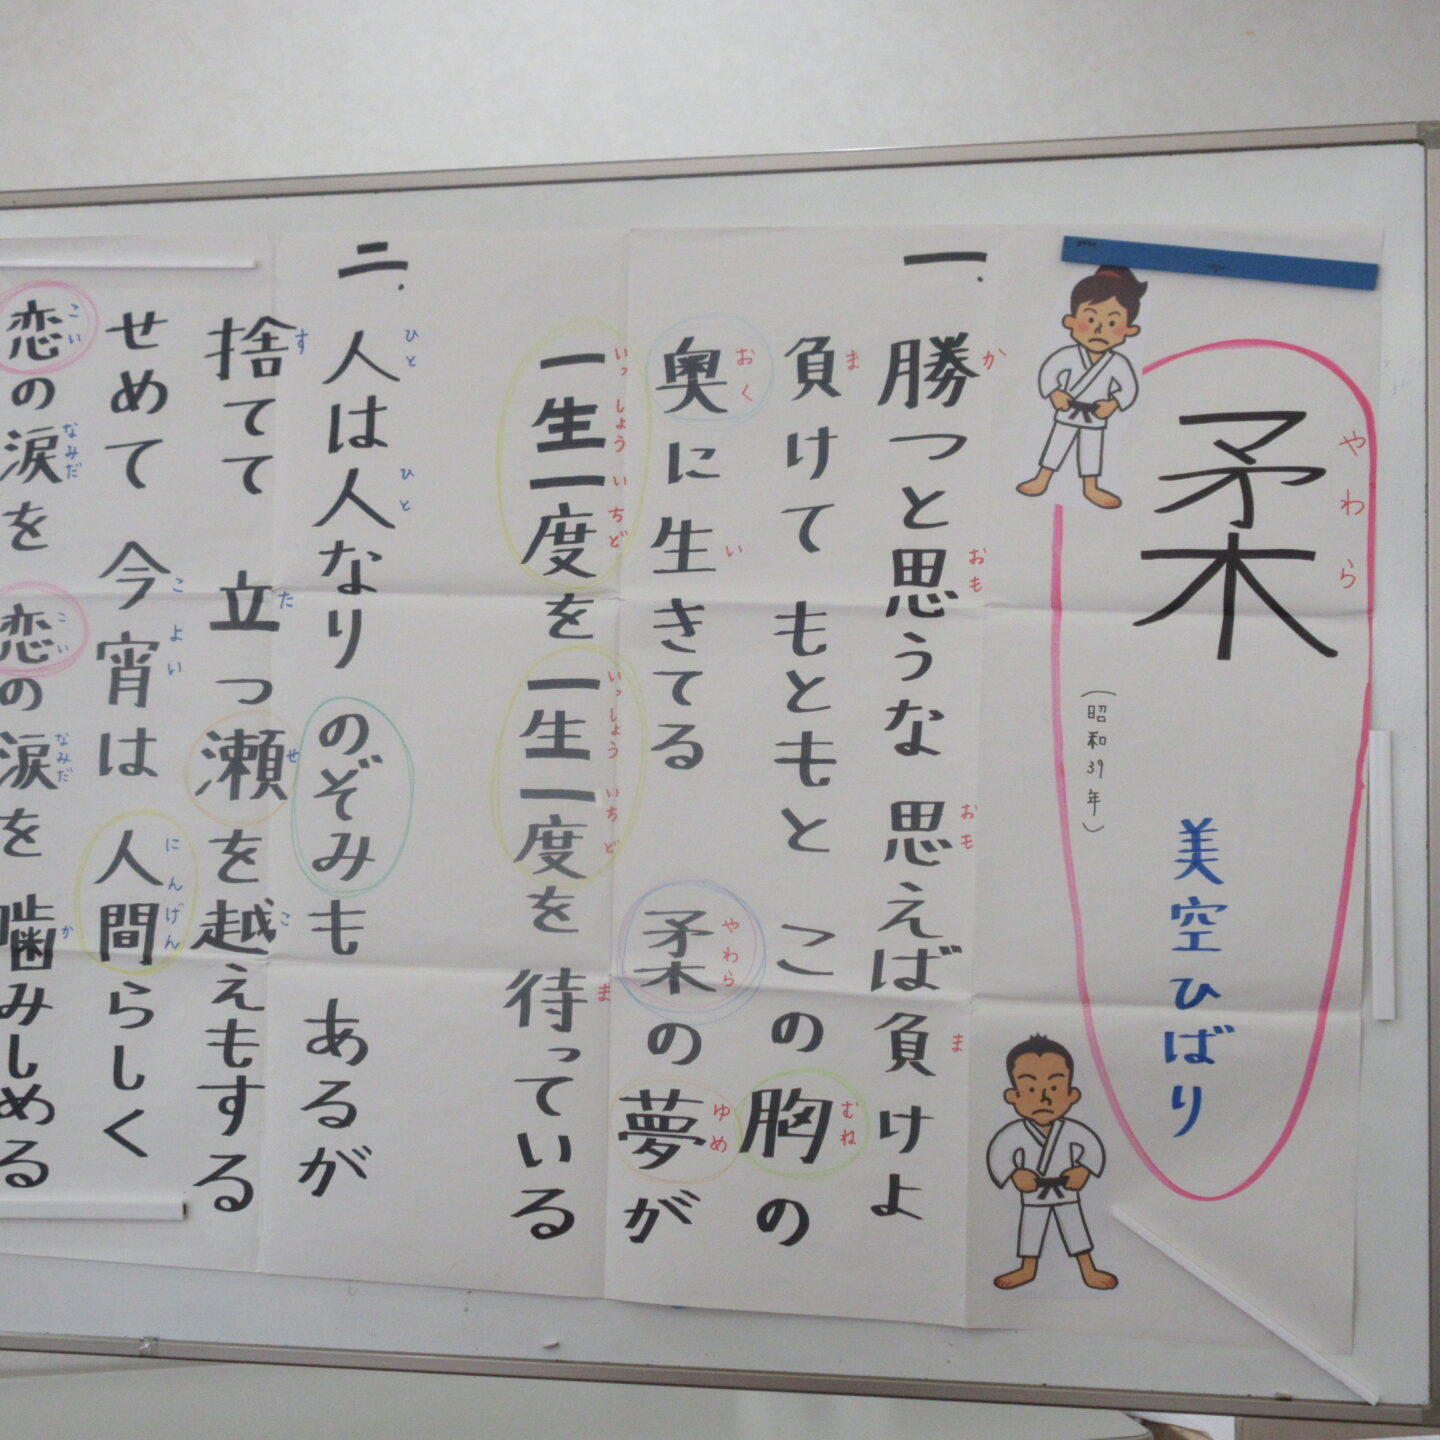 柔
やわら
(昭和39年)
美空ひばり
一.
勝つと思うな 思えば負けよ
か おも おも ま
負けてもともと この胸の
ま むね
奥に生きてる 柔の夢が
おく い やわら ゆめ
一生一度を 一生一度を 待っている
いっしょういちど いっしょういちど ま
二.
人は人なり のぞみも あるが
ひと ひと
捨てて 立つ瀬を越えもする
す た せ こ
せめて 今宵は 人間らしく
こよい にんげん
恋の涙を 恋の涙を 噛みしめる
こい なみだ こい なみだ か